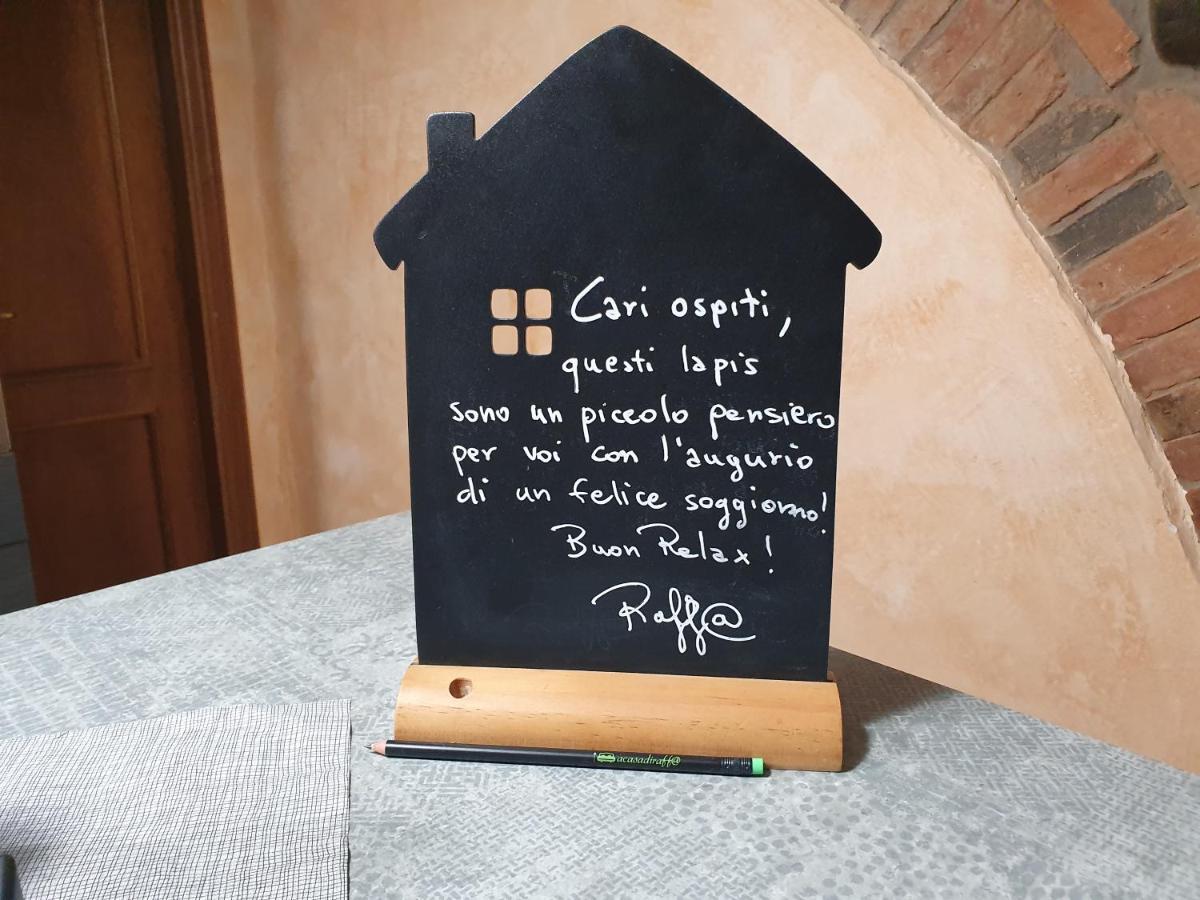 Cari ospiti,
questi lapis
sono un piccolo pensiero
per voi con l'augurio
di un felice soggiorno!
Buon Relax!
Raff@
acasadiraff@